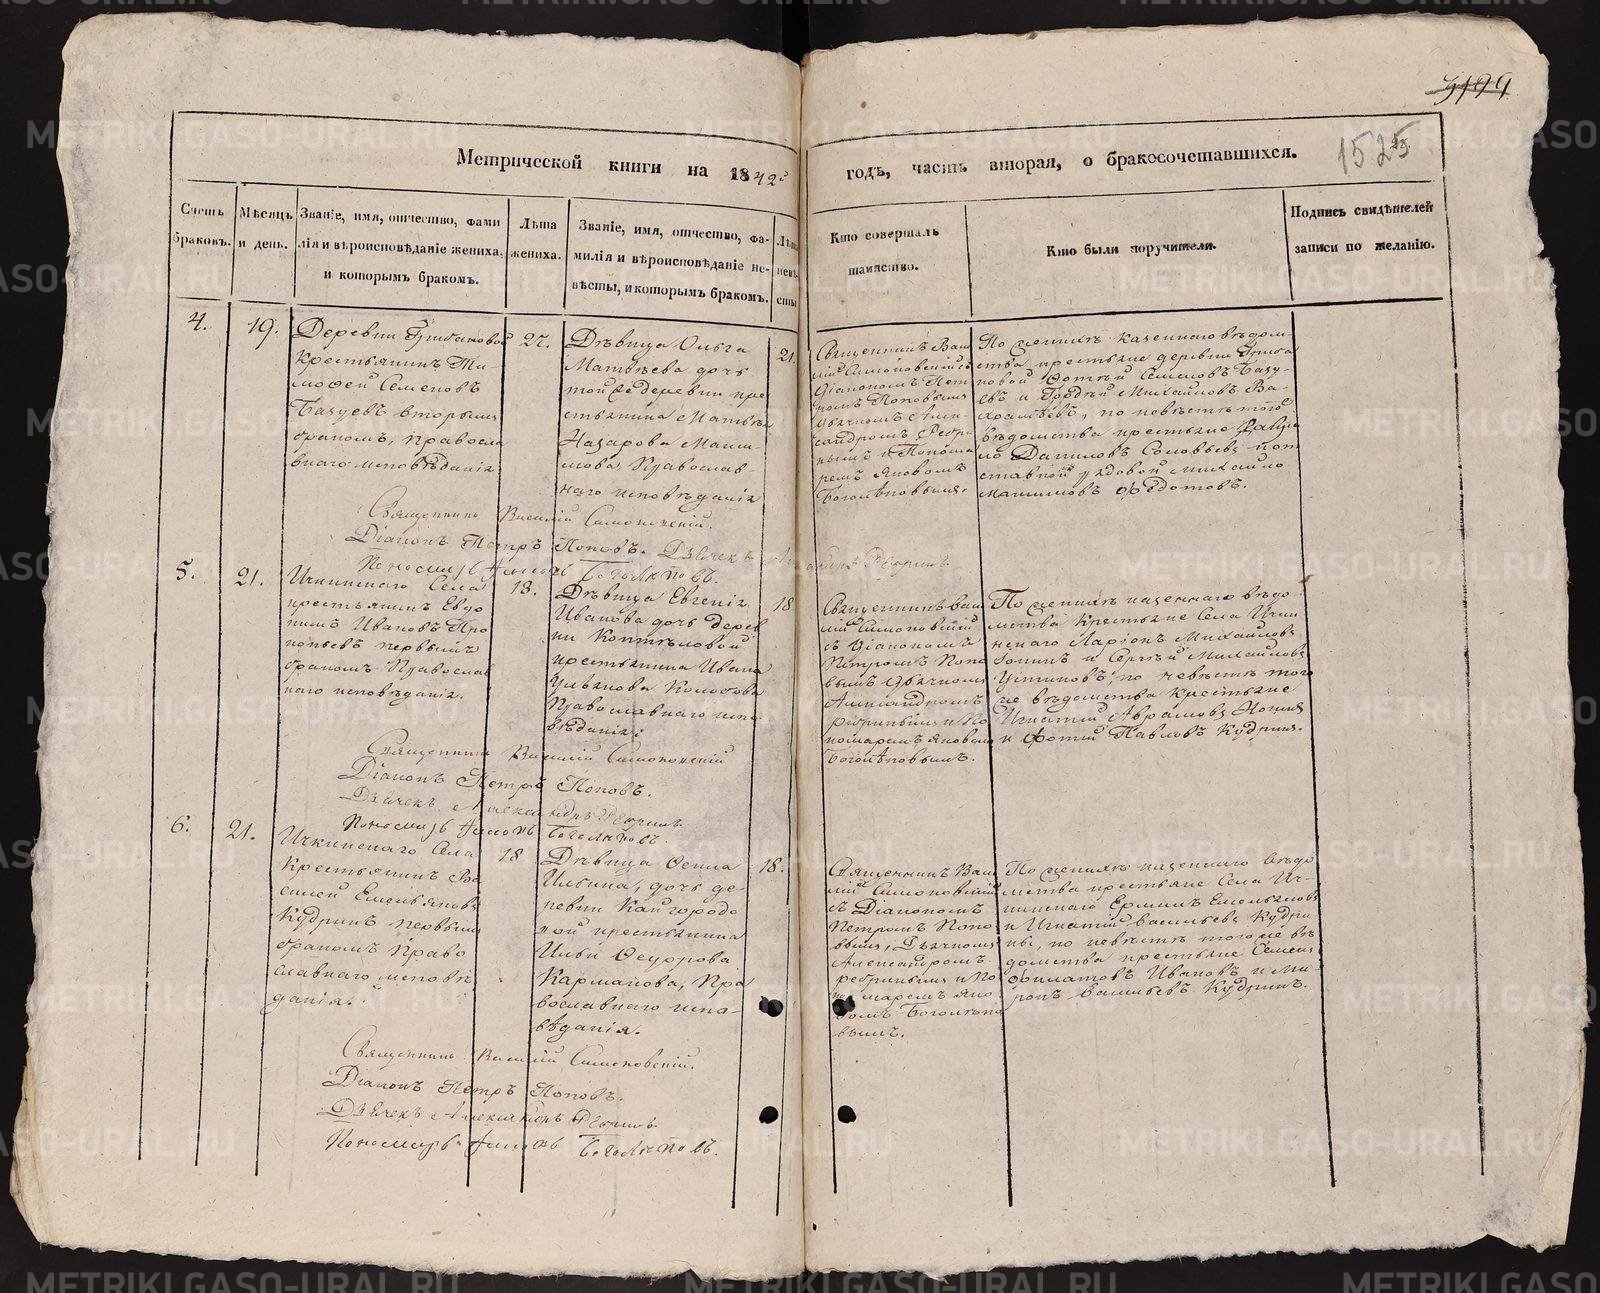 Метрической книги на 1842й годъ, часть вторая, о бракосочетавшихся.
1525
Счетъ браковъ.
Мѣсяцъ и день.
Званіе, имя, отчество, фами
лія и вѣроисповѣданіе жениха,
и которымъ бракомъ.
Лѣта
жениха.
Званіе, имя, отчество, фа-
милія и вѣроисповѣданіе не-
вѣсты, и которымъ бракомъ.
Лѣта
невѣ-
сты
Кто совершалъ
таинство.
Кто были поручители.
Подпись свидѣтелей
записи по желанію.
4.
19.
Деревни Грибановой
крестьянинъ Ти-
мофей Семеновъ
Базуевъ вторымъ
бракомъ, правосла
внаго исповѣданія
27.
Дѣвица Ольга
Матвѣева дочь
той же деревни кре
стьянина Матвѣя
Назарова
Православ-
наго исповѣданія
21.
Священникъ Васи
лій Симоновскій съ
Діакономъ Пет
ромъ Поповымъ
Дьячкомъ Алек-
сандромъ Ребри
нымъ и Понома
ремъ Яковомъ
Боголѣповымъ.
По женихѣ казеннаго вѣдом-
ства крестьяне деревни Гриба
новой Фотѣй Семеновъ Базу-
евъ и Гордѣй Михайловъ Ва-
по невѣстѣ тогожъ
вѣдомства крестьяне Гаври
ло Даниловъ Соловьевъ и от
ставной рядовой Михайло
Максимовъ Федотовъ.
Священникъ Василій Симоновскій.
Діаконъ Петръ Поповъ. Дьячекъ Александръ Ребринъ
Пономарь Яковъ Боголѣповъ.
5.
21.
Ичкинскаго Села
крестьянинъ Евдо
кимъ Ивановъ Про
копьевъ первымъ
бракомъ Православ
наго исповѣданія.
18.
Дѣвица Евгенія
Иванова дочь дерев
ни Коптѣловой
крестьянина Ивана
Ульянова
Православнаго испо
вѣданія.
18
Священникъ Васи
лій Симоновскій
съ Діакономъ
Петромъ Попо
вымъ Дьячкомъ
Александромъ
Ребринымъ и По
номаремъ Яковомъ
Боголѣповымъ.
По женихѣ казеннаго вѣдо-
мства крестьяне Села Ички
нскаго Ларіонъ Михайловъ
и Сергѣй Михайловъ
Устиновъ, по невѣстѣ того
же вѣдомства крестьяне
Игнатій Аврамовъ
и Фотій Павловъ Кудринъ.
Священникъ Василій Симоновскій
Діаконъ Петръ Поповъ.
Дьячекъ Александръ Ребринъ.
Пономарь Яковъ Боголѣповъ.
6.
21.
Ичкинскаго Села
крестьянинъ Ва
силей Емельяновъ
Кудринъ первымъ
бракомъ Право
славнаго исповѣ
данія.
18
Дѣвица
Ильина, дочь де-
ревни Кайгородо
вой крестьянина
Ильи Ѳедорова
Карманова, Пра
вославнаго испо-
вѣданія.
18.
Священникъ Васи
лій Симоновскій
съ Діакономъ
Петромъ Попо
вымъ, Дьячкомъ
Александромъ
Ребринымъ и По
номаремъ Яко
вомъ Боголѣпо
вымъ.
По женихѣ казеннаго вѣдо
мства крестьяне Села Ич-
кинскаго Ермилъ Емельяновъ
и Игнатій Васильевъ Кудри
ны, по невѣстѣ того же вѣ
домства крестьяне Семенъ
Филатовъ Ивановъ и Ми-
ронъ Васильевъ Кудринъ.
Священникъ Василій Симоновскій.
Діаконъ Петръ Поповъ.
Дьячекъ Александръ Ребринъ.
Пономарь Яковъ Боголѣповъ.
METRIKI.GASO-URAL.RU